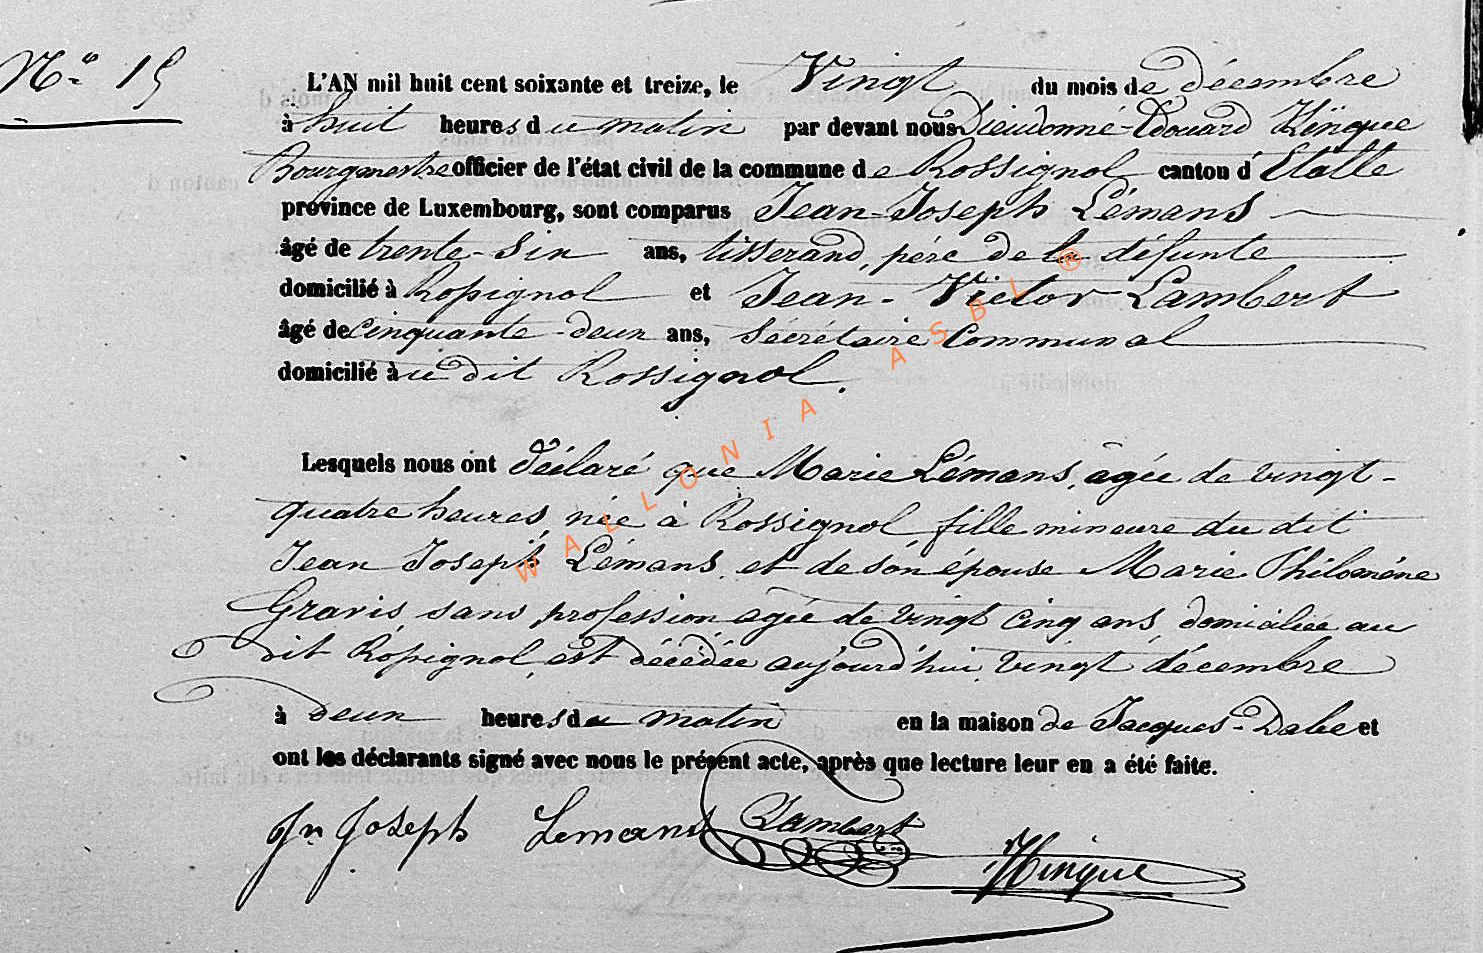 N° 15
L'AN mil huit cent soixante et treize, le Vingt du mois de décembre
à huit heures du matin par devant nous Dieudonné-Edouard Hinque
Bourgmestre officier de l'état civil de la commune de Rossignol canton d'Etalle
province de Luxembourg, sont comparus Jean-Joseph Lémans
âgé de trente-six ans, tisserand, père de la défunte
domicilié à Rossignol et Jean-Victor Lambert
âgé de cinquante-deux ans, Sécrétaire Communal
domicilié à au dit Rossignol.
Lesquels nous ont déclaré que Marie Lémans, agée de vingt-
quatre heures, née à Rossignol fille mineure du dit
Jean Joseph Lémans, et de són épouse Marie Philomène
Gravis, sans profession agée de vingt cinq ans, domiciliée au
dit Rossignol, est décédée aujourd'hui, vingt décembre
à deux heures du matin en la maison de Jacques-Dabe et
ont les déclarants signé avec nous le présent acte, après que lecture leur en a été faite.
Jn Joseph Lemans Lambert Hinque
WALLONIA ASBL ®